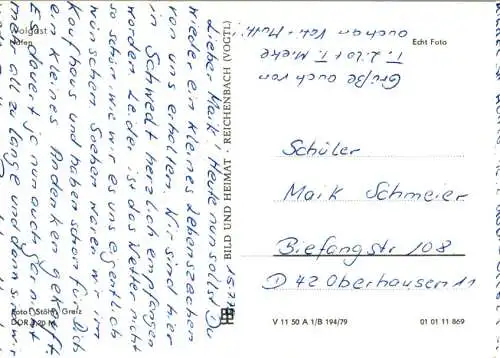 Wolgast
Hafen
15.7.79
Lieber Maik! Heute nun sollst Du
wieder ein kleines Lebenszeichen
von uns erhalten. Wir sind hier
in Schwedt herzlich empfangen
worden. Leider ist das Wetter nicht
so schön, wie wir es uns eigentlich
wünschen. Soeben waren wir im
Kaufhaus und haben schon für Dich
e. kleines Andenken gekauft.
Es dauert ja nun auch gar nicht
mehr all zu lange und dann sind wir
Foto: Stöhr, Greiz
DDR 0,20 M
BILD UND HEIMAT · REICHENBACH (VOGTL)
Grüße auch von
T. Lilo + T. Mieke
auch an Vati + Mutti
Echt Foto
Schüler
Maik Schmeier
Biefangstr 108
D 42 Oberhausen 11
V 11 50 A 1/B 194/79
01 01 11 869